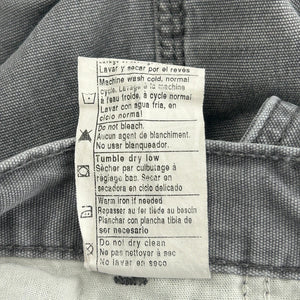 Lavar y secar por el reves
Machine wash cold, normal
cycle. Lavage à la machine
à l'eau froide, à cycle normal
Lavar con agua fría, en
ciclo normal
Do not bleach.
Aucun agent de blanchiment.
No usar blanqueador.
Tumble dry low
Sécher par culbutage à
réglage bas. Secar en
secadora en ciclo delicado
Warm iron if needed
Repasser au fer tiède au besoin
Planchar con plancha tibia de
ser necesario
Do not dry clean
Ne pas nettoyer à sec
No lavar en seco